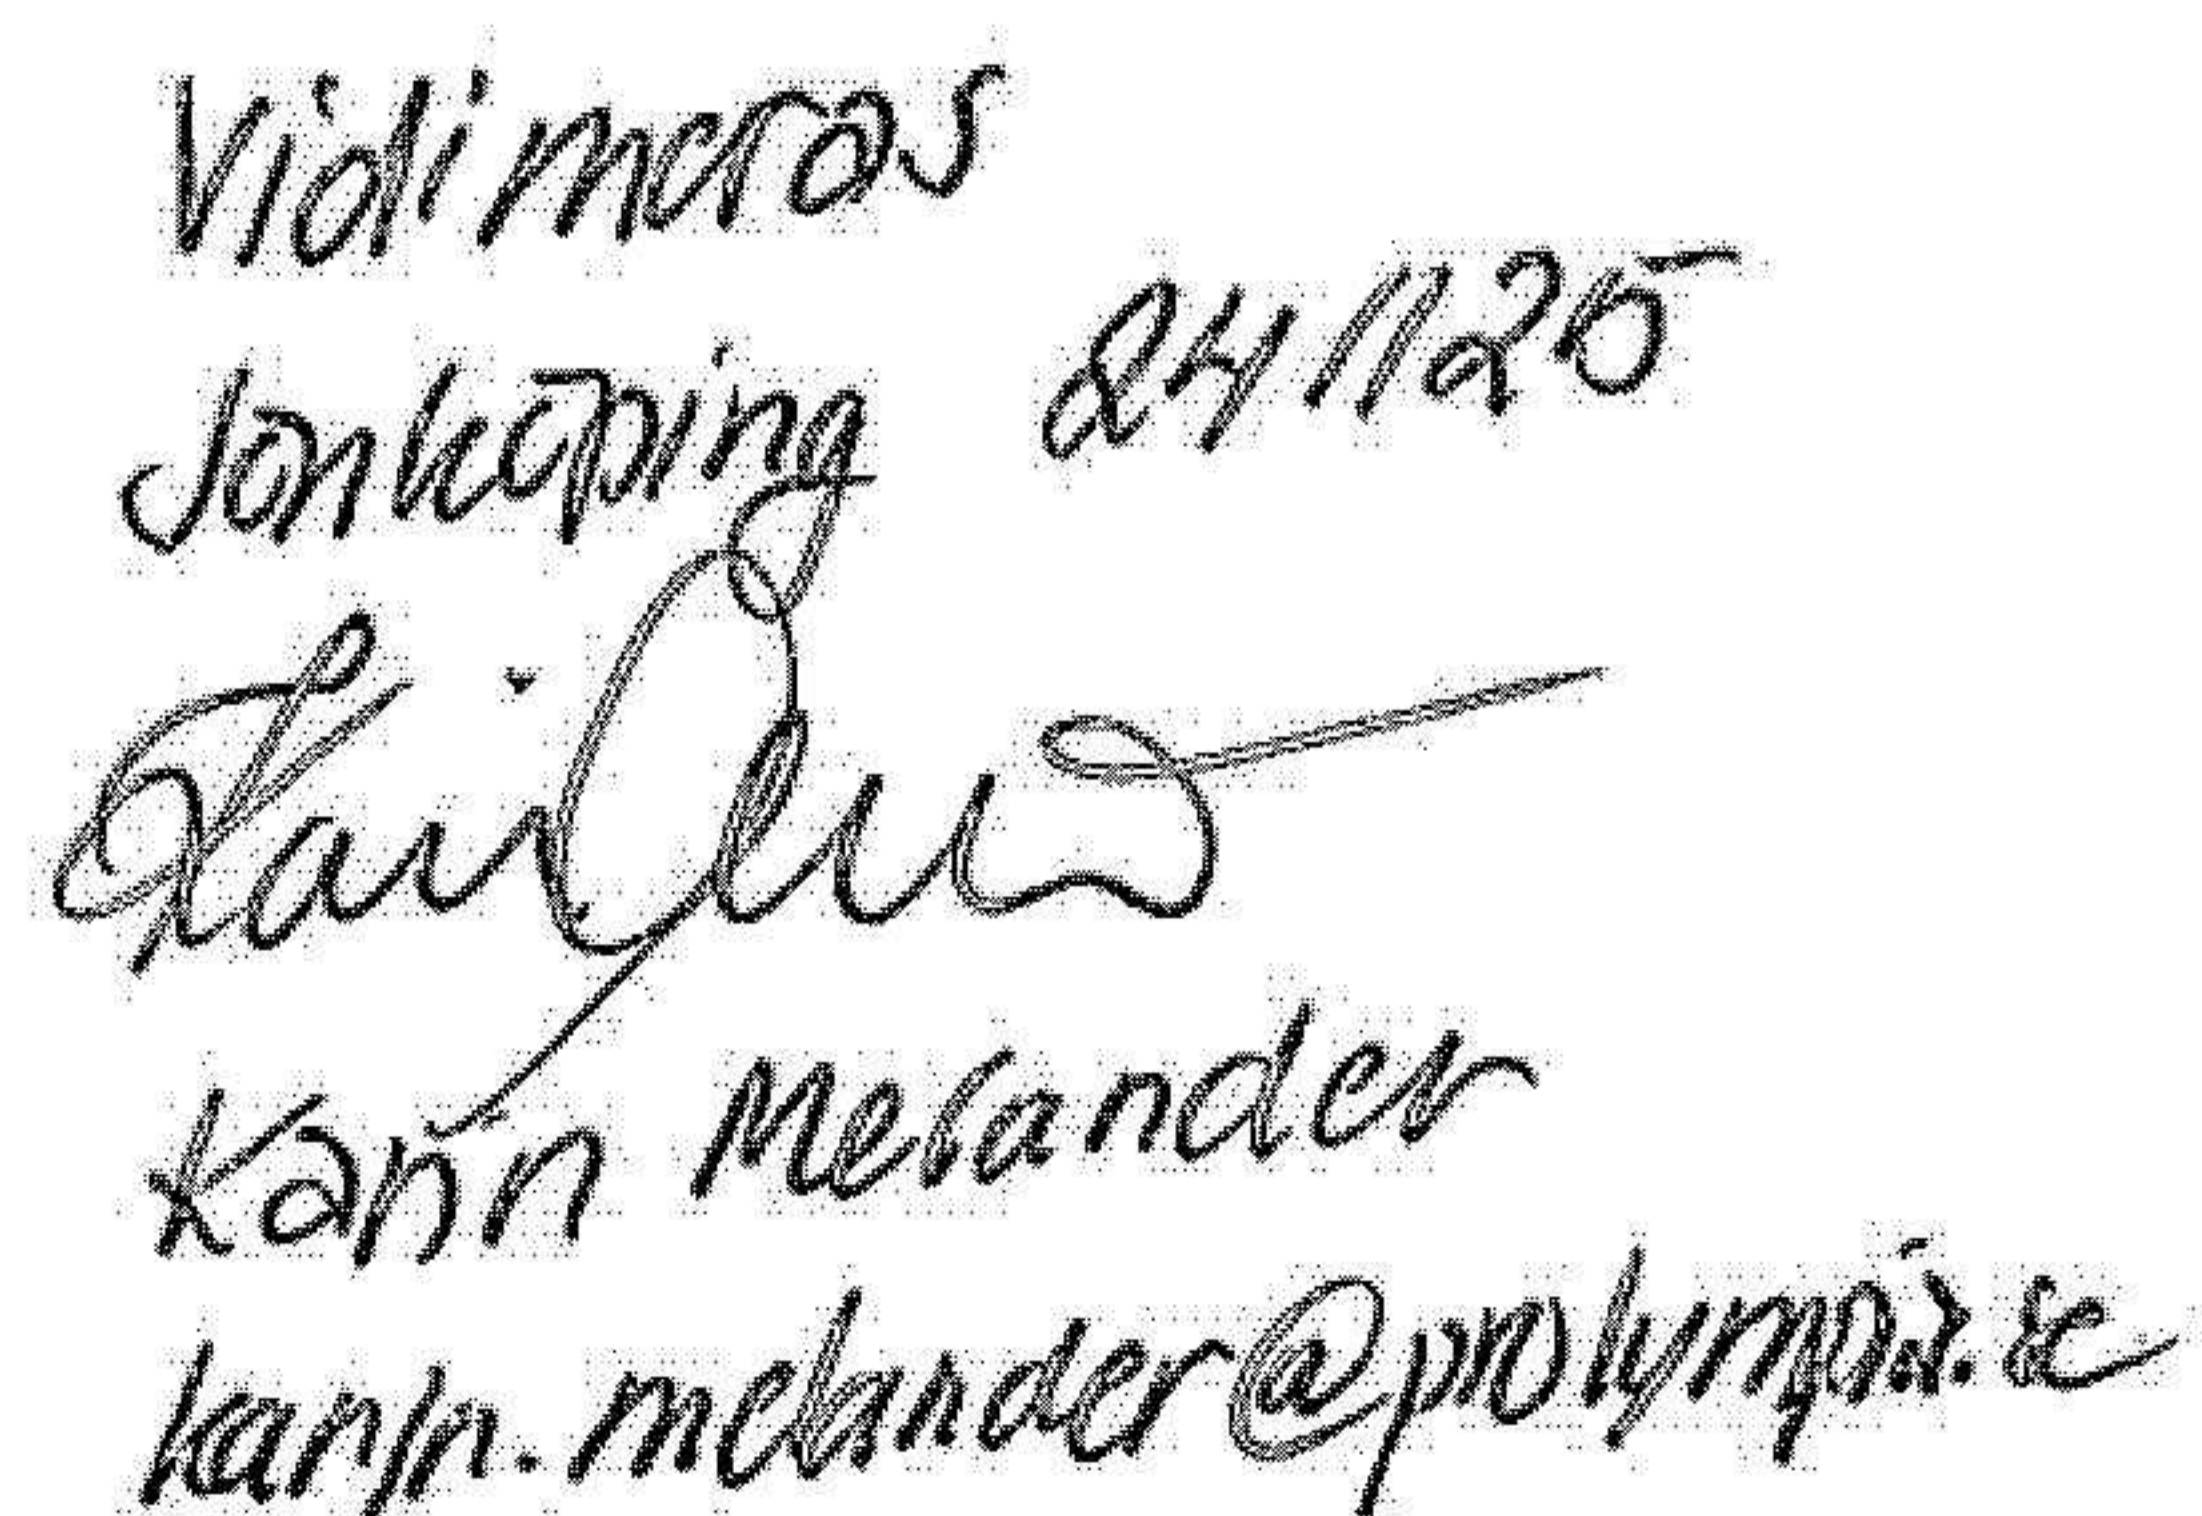 Vidimeras
Jönköping 241125
Karin Melander
karin.melander@prolympia.se